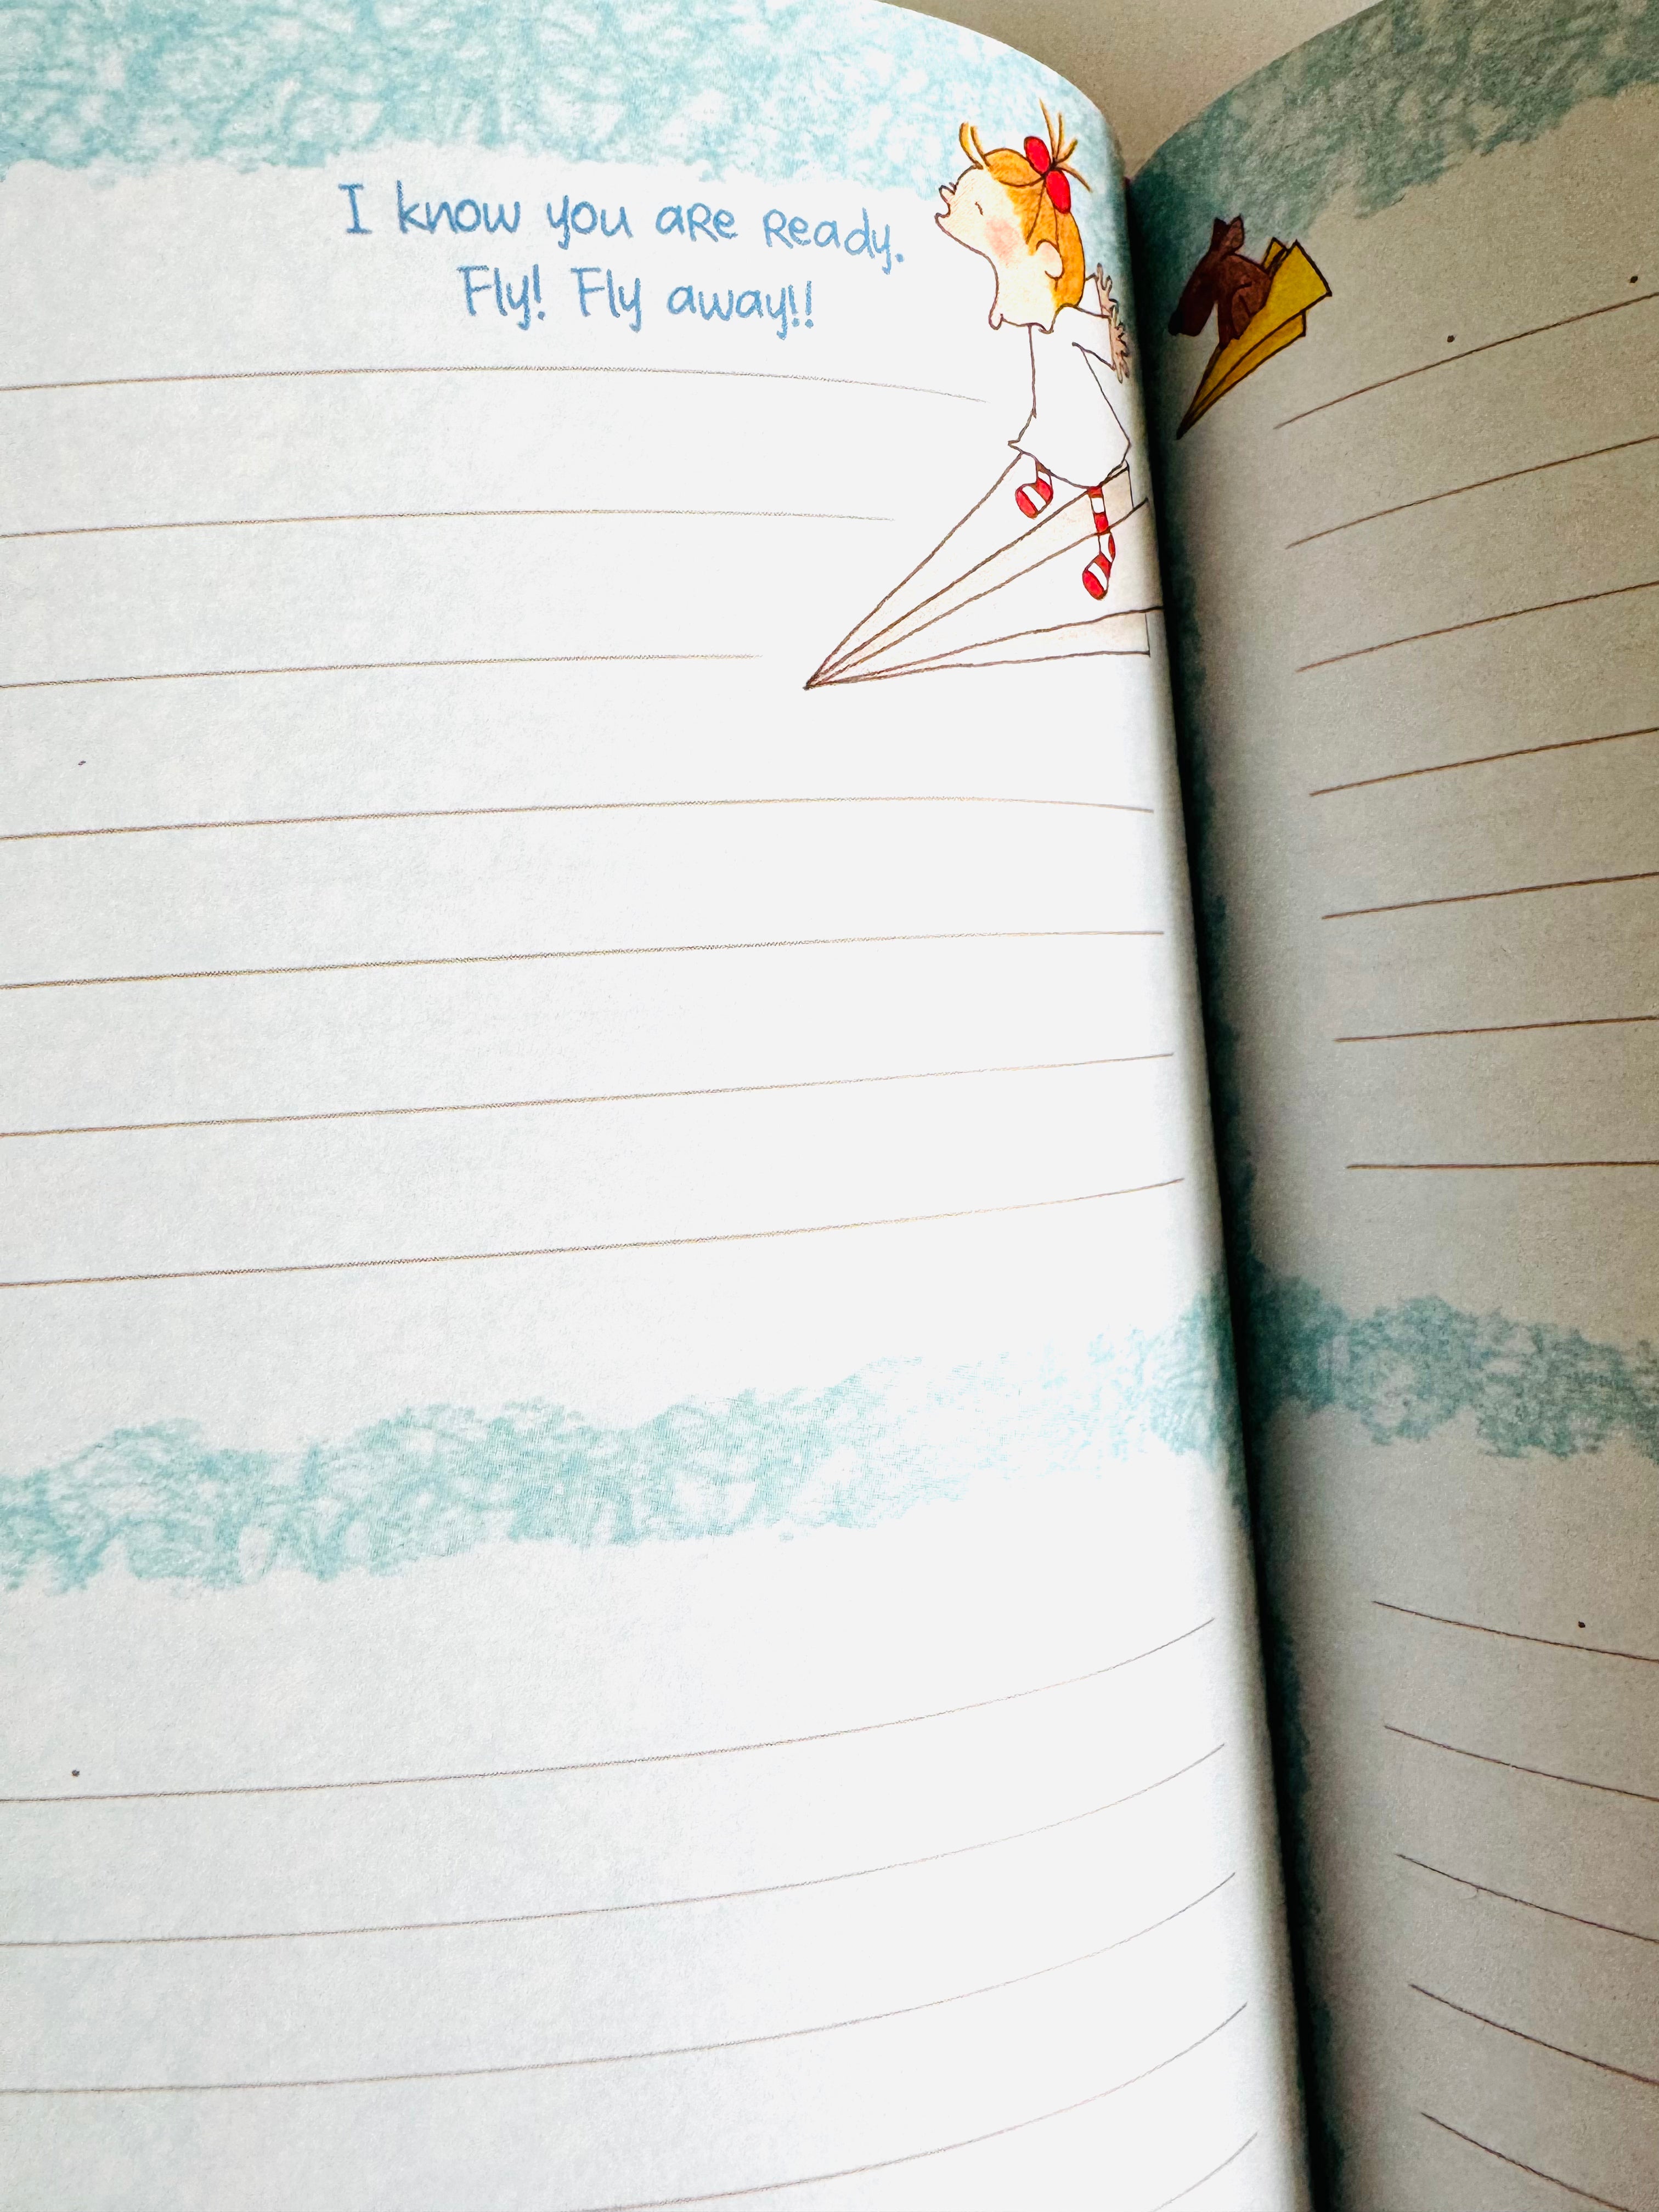 I know you aRe Ready.
Fly! Fly away!!